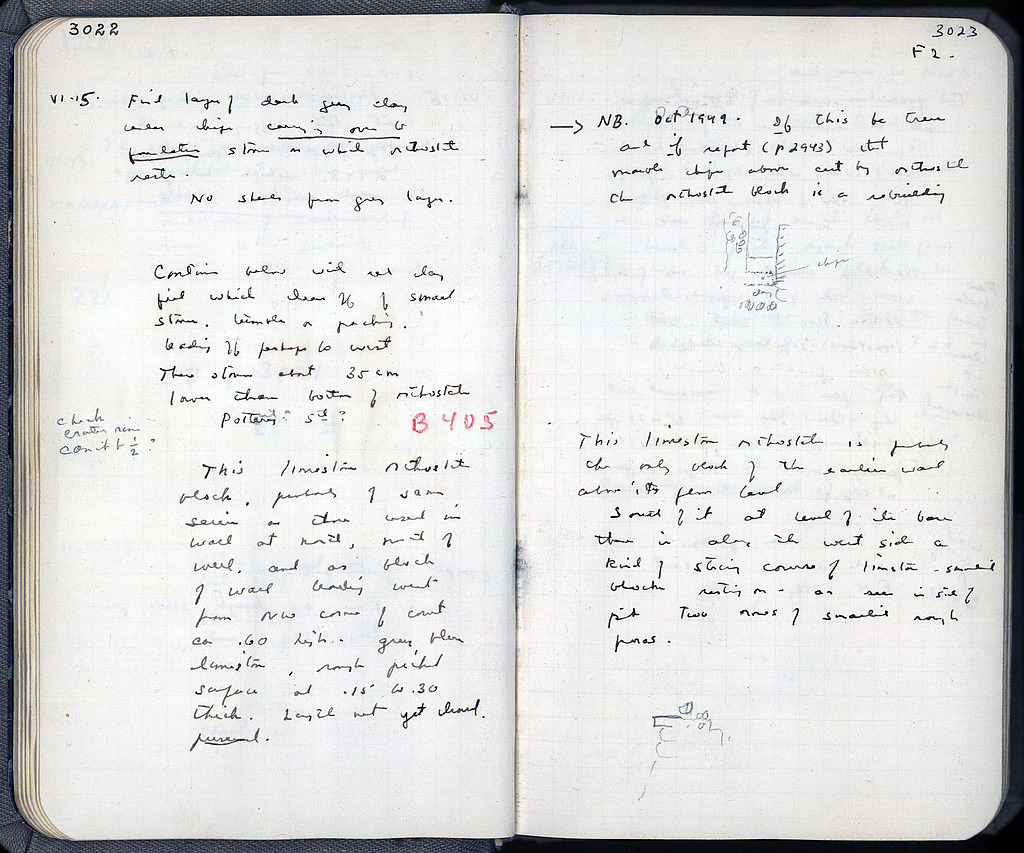 3022
VI.15. Find layer of dark grey clay
under chips coming over to
foundation stone on which orthostate
rests.
No sherds from grey layer.
Continue below with red clay
which clears off of small
stone. tumble or packing.
leading off perhaps to west
These stones about 35 cm
lower than bottom of orthostate
Pottery? 5th?
B 405
check
crater rim
This limestone orthostate
block, probably of same
series as those used in
wall at north, north of
well, and as block
of wall leading west
from NW corner of court
ca .60 high.. grey blue
limestone, rough picked
surface at .15 to .30
thick. Length not yet
3023
F 2.
→ NB. Oct 1949. If this be true
and if report (p 2943) that
marble chips above cut by orthostate
the orthostate block is a rebuilding
chips
clay
This limestone orthostate is probably
the only block of the earlier wall
above its floor level
South of it at level of its base
there is along the west side a
kind of string course of limestone - small
blocks resting on - as seen in side of
pit two rows of smallish rough
poros.